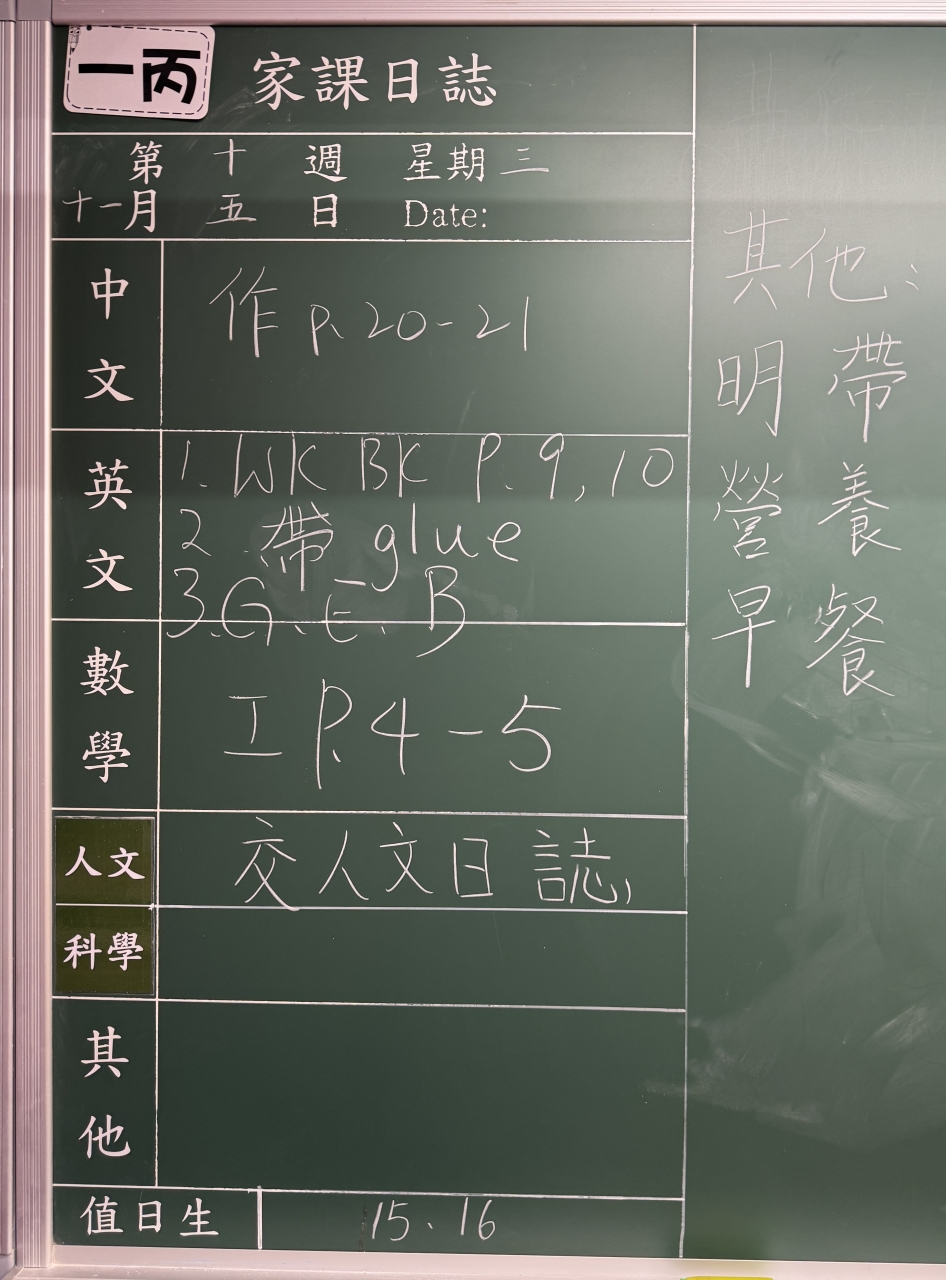 一丙
家課日誌
第 十 週 星期 三
十一月 五 日 Date:
中文
作 p.20-21
英文
1. WK BK P. 9, 10
2. 帶 glue
3. G. E. B
數學
工 P.4-5
人文
交人文日誌
科學
其他
值日生
15、16
其他:
明 帶
營 養
早 餐